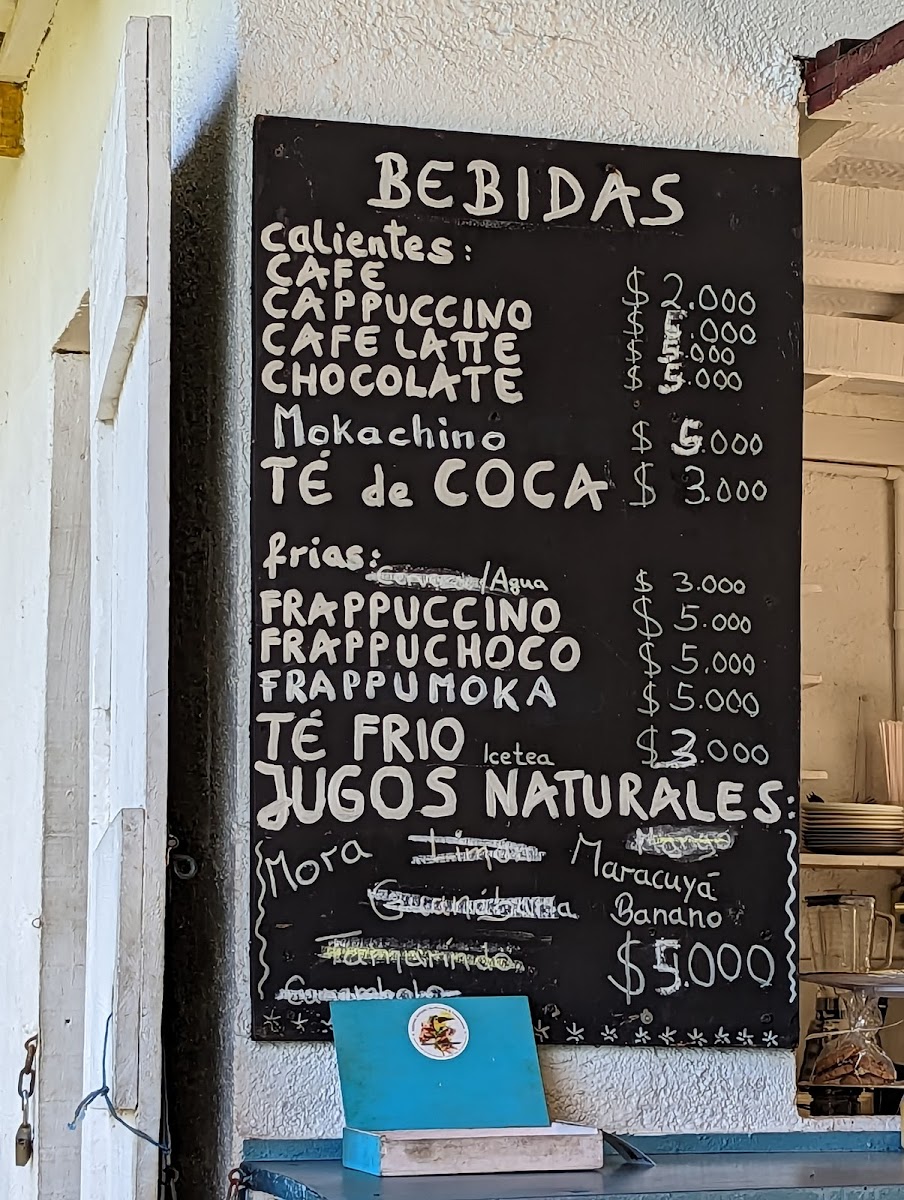 BEBIDAS
Calientes:
CAFE $ 2.000
CAPPUCCINO $ 5.000
CAFE LATTE $ 5.000
CHOCOLATE $ 5.000
Mokachino $ 5.000
TÉ de COCA $ 3.000
frias:
/Agua $ 3.000
FRAPPUCCINO $ 5.000
FRAPPUCHOCO $ 5.000
FRAPPUMOKA $ 5.000
TÉ FRIO Icetea $ 3.000
JUGOS NATURALES:
Mora Maracuyá
Banano
Tamarindo
$5.000